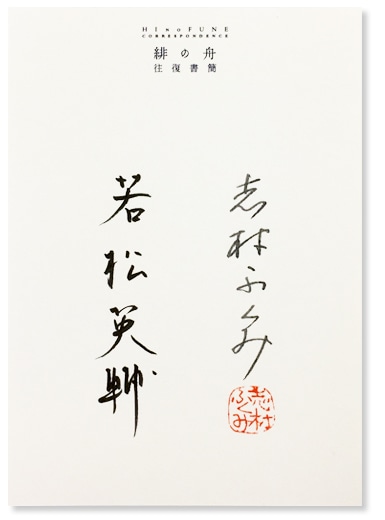 HINOFUNE
CORRESPONDENCE
緋の舟
往復書簡
志村ふくみ
志村
ふくみ
若松英輔